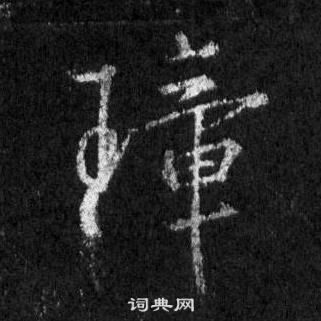 璋
词典网